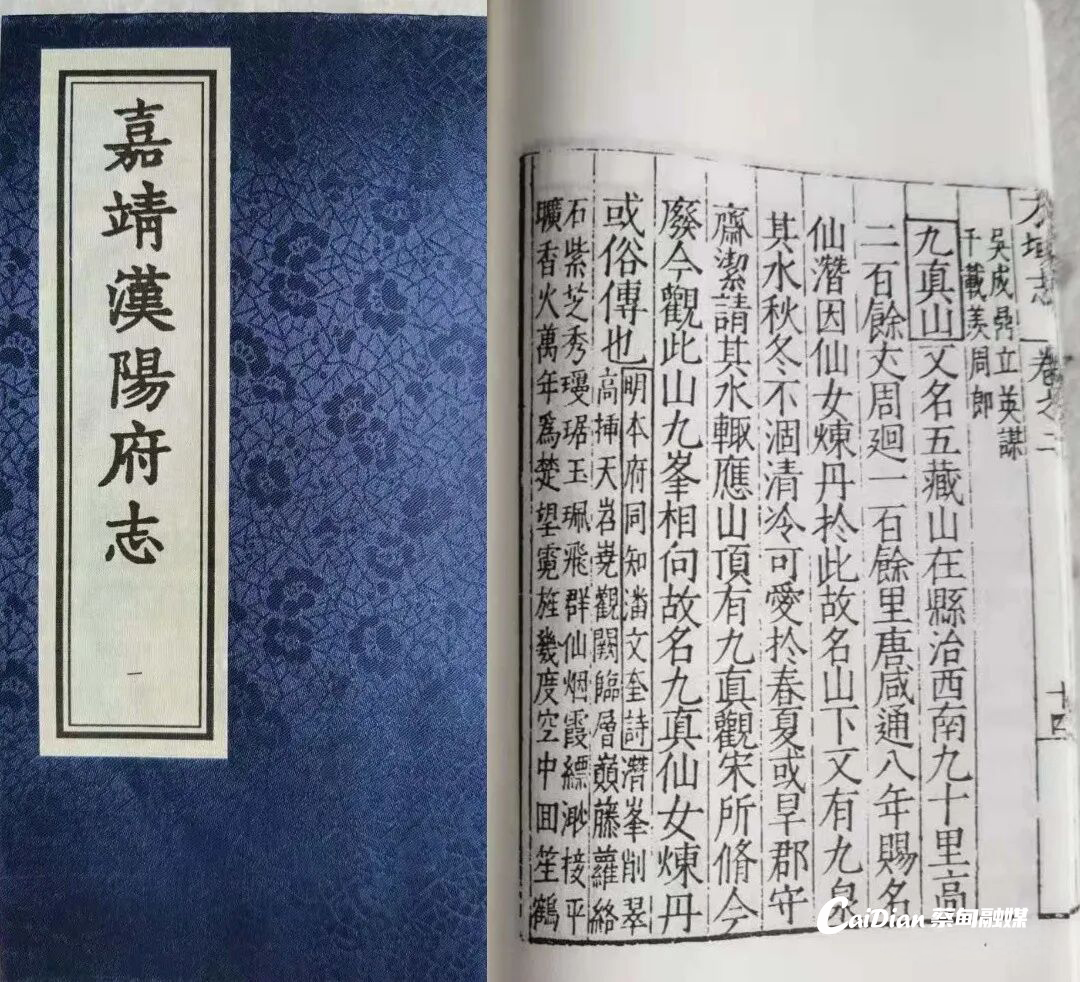 嘉靖漢陽府志
一
方域志 卷之二
十四
吳成鼎立英謀
千載美周郎
九真山又名五藏山在縣治西南九十里高
二百餘丈周廻一百餘里唐咸通八年賜名
仙潛因仙女煉丹於此故名山下又有九泉
其水秋冬不涸清冷可愛於春夏或旱郡守
齋潔請其水輙應山頂有九真觀宋所脩今
廢今觀此山九峯相向故名九真仙女煉丹
或俗傳也明本府同知潘文奎詩潛峯削翠
高揷天岧嶤觀闕臨層巔藤蘿絡
石紫芝秀瓊琚玉珮飛群仙烟霞縹渺接平
曠香火萬年為楚望霓旌幾度空中回笙鶴
CaiDian 蔡甸融媒